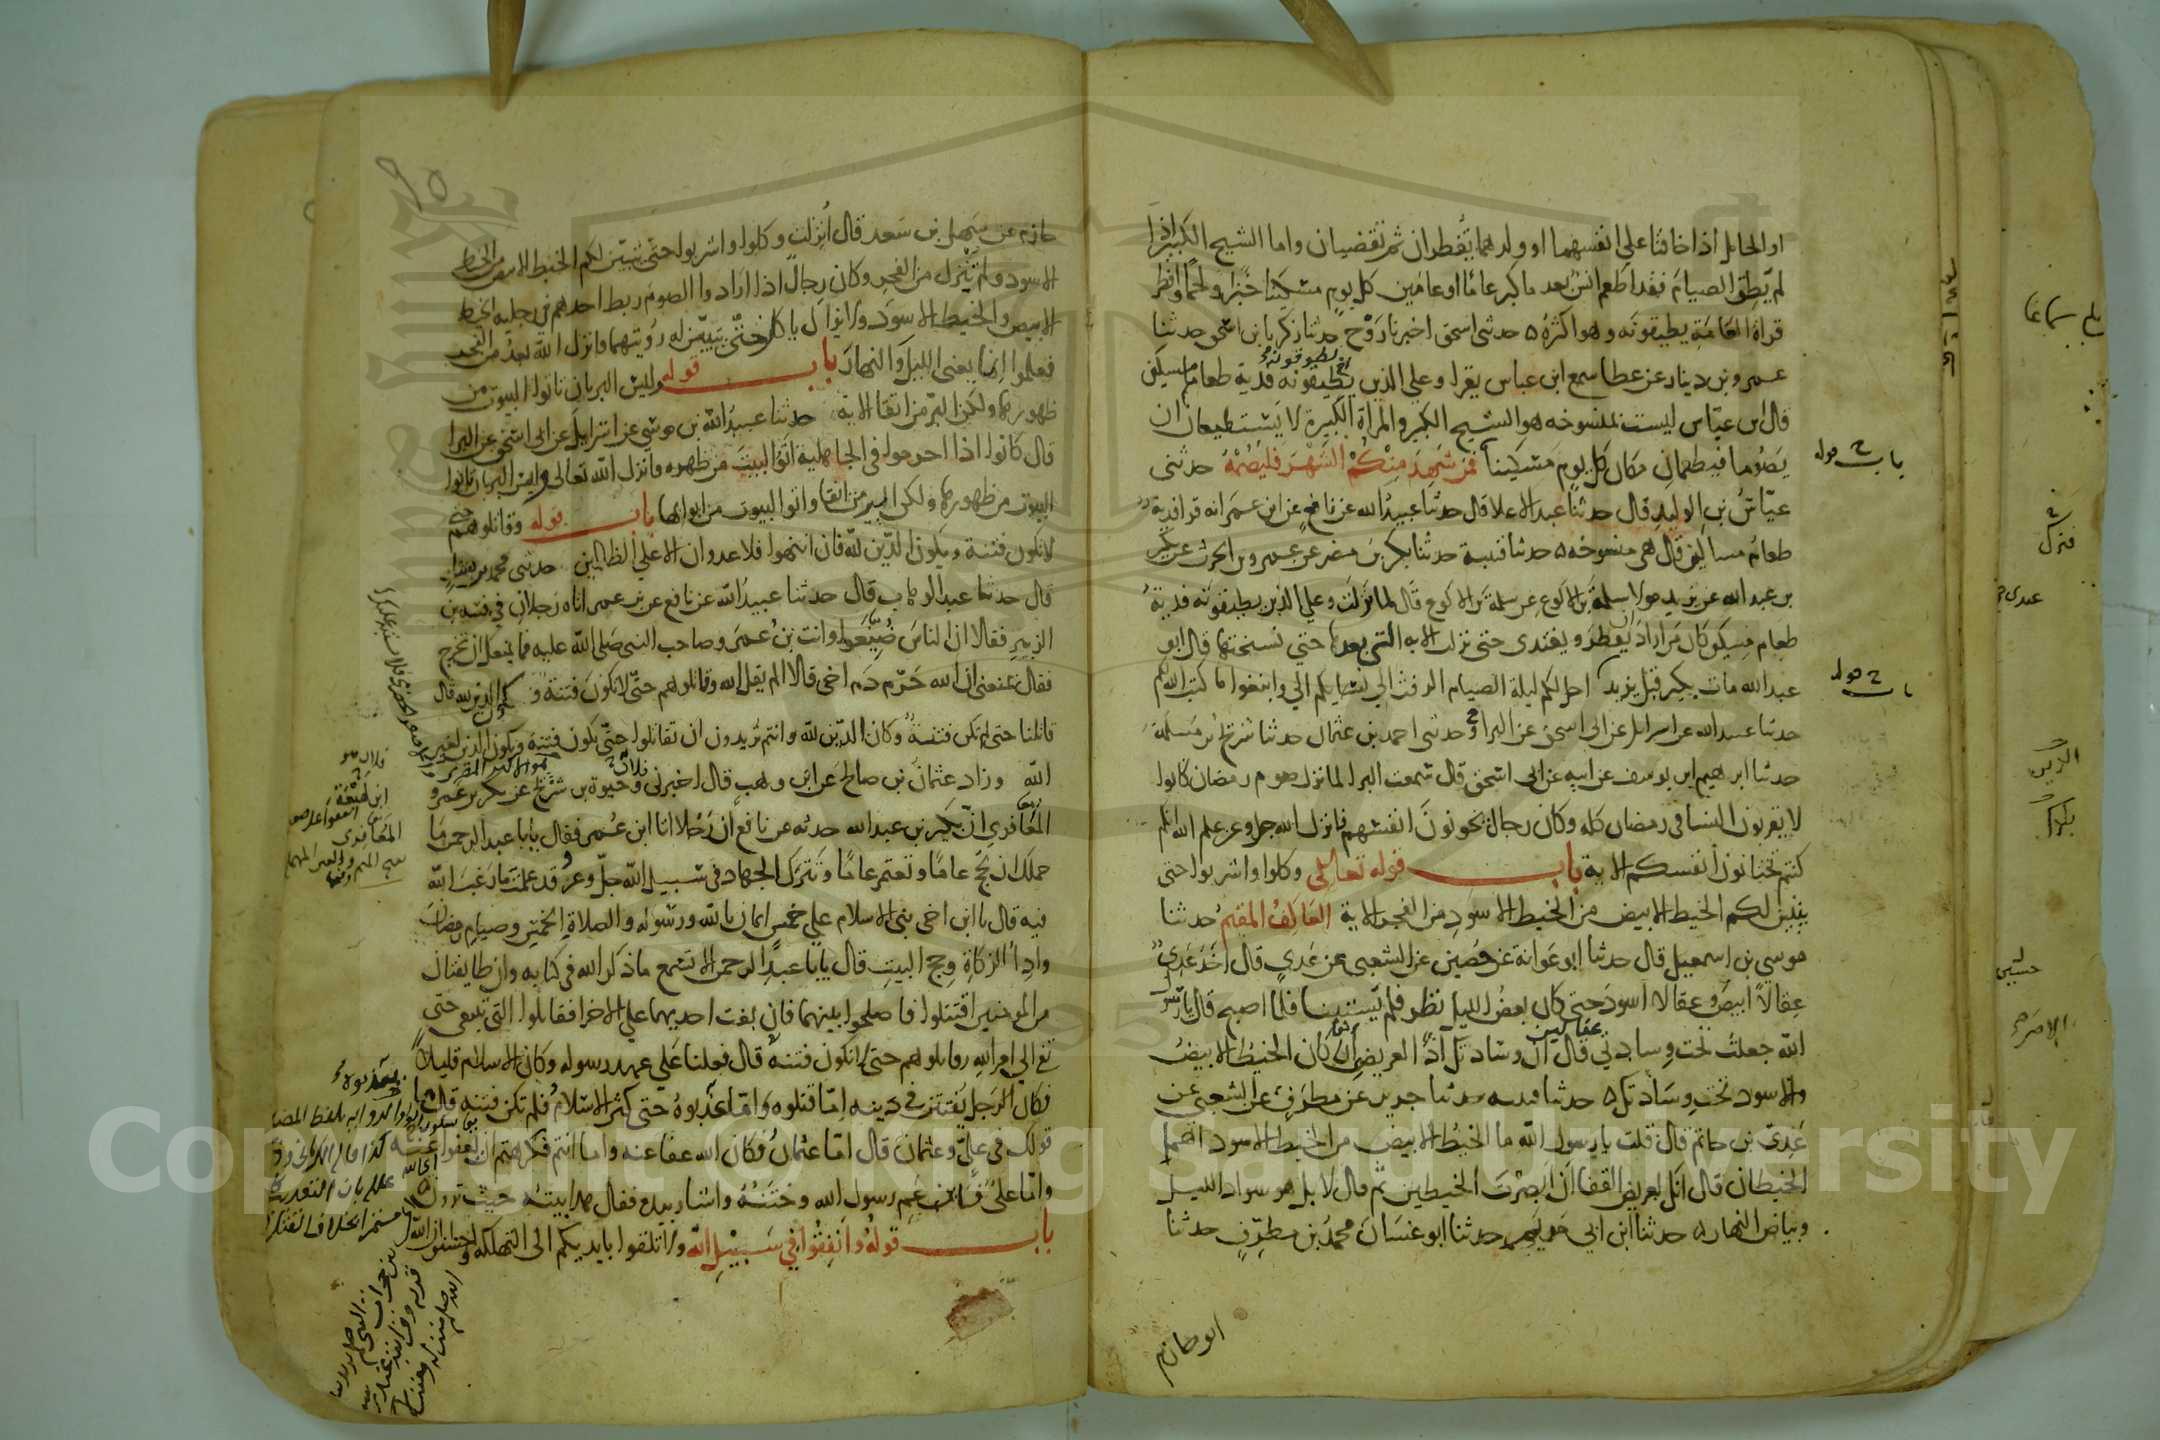 او الحامل اذا خافتا على انفسهما او ولدهما تفطران ثم تقضيان واما الشيخ الكبير اذا
لم يطق الصيام فقد اطعم انس بعد ما كبر عاما او عامين كل يوم مسكينا خبزا ولحما وافطر
قراة العامة يطيقونه وهو اكثر ه حدثنى اسحق اخبرنا روح حدثنا زكريا بن اسحق حدثنا
عمرو بن دينار عن عطا سمع ابن عباس يقرا وعلى الذين يطوقونه فدية طعام مسكين
قال ابن عباس ليست بمنسوخه هو الشيخ الكبير والمراة الكبيرة لا يستطيعان ان
يصوما فيطعمان مكان كل يوم مسكينا فمن شهد منكم الشهر فليصمه حدثنى
عياش بن الوليد قال حدثنا عبد الاعلا قال حدثنا عبيد الله عن نافع عن ابن عمر انه قرا فدية
طعام مساكين قال هى منسوخه ه حدثنا قتيبة حدثنا بكر بن مضر عن عمرو بن الحرث عن بكير
بن عبد الله عن يزيد مولا سلمة بن الاكوع عن سلمة بن الاكوع قال لما نزلت وعلى الذين يطيقونه فدية
طعام مسكين كان من اراد ان يفطر ويفتدى حتى نزلت الايه التى بعدها حتي نسختها قال ابو
عبد الله مات بكير قبل يزيد احل لكم ليلة الصيام الرفث الي نسايكم الي وابتغوا ما كتب الله لكم
حدثنا عبيد الله عن اسرايل عن ابى اسحق عن البرا ح وحدثنى احمد بن عثمان حدثنا شريح بن مسلمة
حدثنا ابرهيم بن يوسف عن ابيه عن ابى اسحق قال سمعت البرا لما نزل صوم رمضان كانوا
لا يقربون النسا فى رمضان كله وكان رجال يخونون انفسهم فانزل الله جل وعز علم الله انكم
كنتم تختانون انفسكم الاية باب قوله تعالى وكلوا واشربوا حتى
يتبين لكم الخيط الابيض من الخيط الاسود من الفجر الاية العاكف المقيم حدثنا
موسي بن اسمعيل قال حدثنا ابو عوانة عن حصين عن الشعبي عن عدي قال اخذ عدي
عقالا ابيض وعقالا اسود حتى كان بعض الليل نظر فلم يستبينا فلما اصبح قال يا رسول
الله جعلت تحت وسادتي عقالين قال ان وسادتك اذا لعريض ان كان الخيط الابيض
والاسود تحت وسادتك ه حدثنا قتيبه حدثنا جرير عن مطرف عن الشعبي عن
عدي بن حاتم قال قلت يا رسول الله ما الخيط الابيض من الخيط الاسود اهما
الخيطان قال انك لعريض القفا ان ابصرت الخيطين ثم قال لا بل هو سواد الليل
وبياض النهار ه حدثنا ابن ابي مريم حدثنا ابو غسان محمد بن مطرف حدثنا
ابو حازم
باب قوله
باب قوله
حازم عن سهل بن سعد قال انزلت وكلوا واشربوا حتى يتبين لكم الخيط الابيض من الخيط
الاسود ولم ينزل من الفجر وكان رجال اذا ارادوا الصوم ربط احدهم فى رجليه الخيط
الابيض والخيط الاسود ولا يزال ياكل حتى يتبين له رؤيتهما فانزل الله بعد من الفجر
فعلموا انما يعنى الليل والنهار باب قوله وليس البر بان تاتوا البيوت من
ظهورها ولكن البر من اتقا الاية حدثنا عبيد الله بن موسي عن اسرايل عن ابى اسحق عن البرا
قال كانوا اذا احرموا فى الجاهلية اتوا البيت من ظهره فانزل الله تعالى وليس البر بان تاتوا
البيوت من ظهورها ولكن البر من اتقا واتوا البيوت من ابوابها باب قوله وقاتلوهم حتى
لا تكون فتنة ويكون الدين لله فان انتهوا فلا عدوان الا على الظالمين حدثنى محمد بن بشار
قال حدثنا عبد الوهاب قال حدثنا عبيد الله عن نافع عن بن عمر اتاه رجلان في فتنه بن
الزبير فقالا ان الناس ضيعوا وانت بن عمر وصاحب النبى صلى الله عليه فما يمنعك ان تخرج
فقال يمنعنى ان الله حرم دم اخى قالا الم يقل الله وقاتلوهم حتى لا تكون فتنة و يكون الدين لله قال
قاتلنا حتى لم تكن فتنة وكان الدين لله وانتم تريدون ان تقاتلوا حتى تكون فتنة ويكون الدين لغير
الله وزاد عثمان بن صالح عن ابن وهب قال اخبرنى فلان وحيوة بن شريح عن بكر بن عمرو
المعافري ان بكير بن عبد الله حدثه عن نافع ان رجلا اتا ابن عمر فقال يا ابا عبد الرحمن ما
حملك ان تحج عاما وتعتمر عاما وتترك الجهاد فى سبيل الله جل وعز قد علمت ما رغب الله
فيه قال يا ابن اخى بنى الاسلام علي خمس ايمان بالله ورسوله والصلاة الخمس وصيام رمضان
واداء الزكاة وحج البيت قال يا ابا عبد الرحمن الا تسمع ما ذكر الله فى كتابه وان طايفتان
من المومنين اقتتلوا فاصلحوا بينهما فان بغت احديهما علي الاخرا فقاتلوا التى تبغى حتى
تفى الى امر الله وقاتلوهم حتى لا تكون فتنة قال فعلنا على عهد رسوله وكان الاسلام قليلا
فكان الرجل يفتتن فى دينه اما قتلوه واما عذبوه حتى كثر الاسلام فلم تكن فتنه قال فما
قولك فى علي وعثمان قال اما عثمان فكان الله عفا عنه واما انتم فكرهتم ان تعفوا عنه
واما على فابن عم رسول الله وختنه واشار بيده فقال هذا بيته حيث ترون
باب قوله وانفقوا في سبيل الله ولا تلقوا بايديكم الى التهلكه واحسنوا ان الله
فلان هو
ابن لهيعة
المعافرى
Copyright © King Saud University